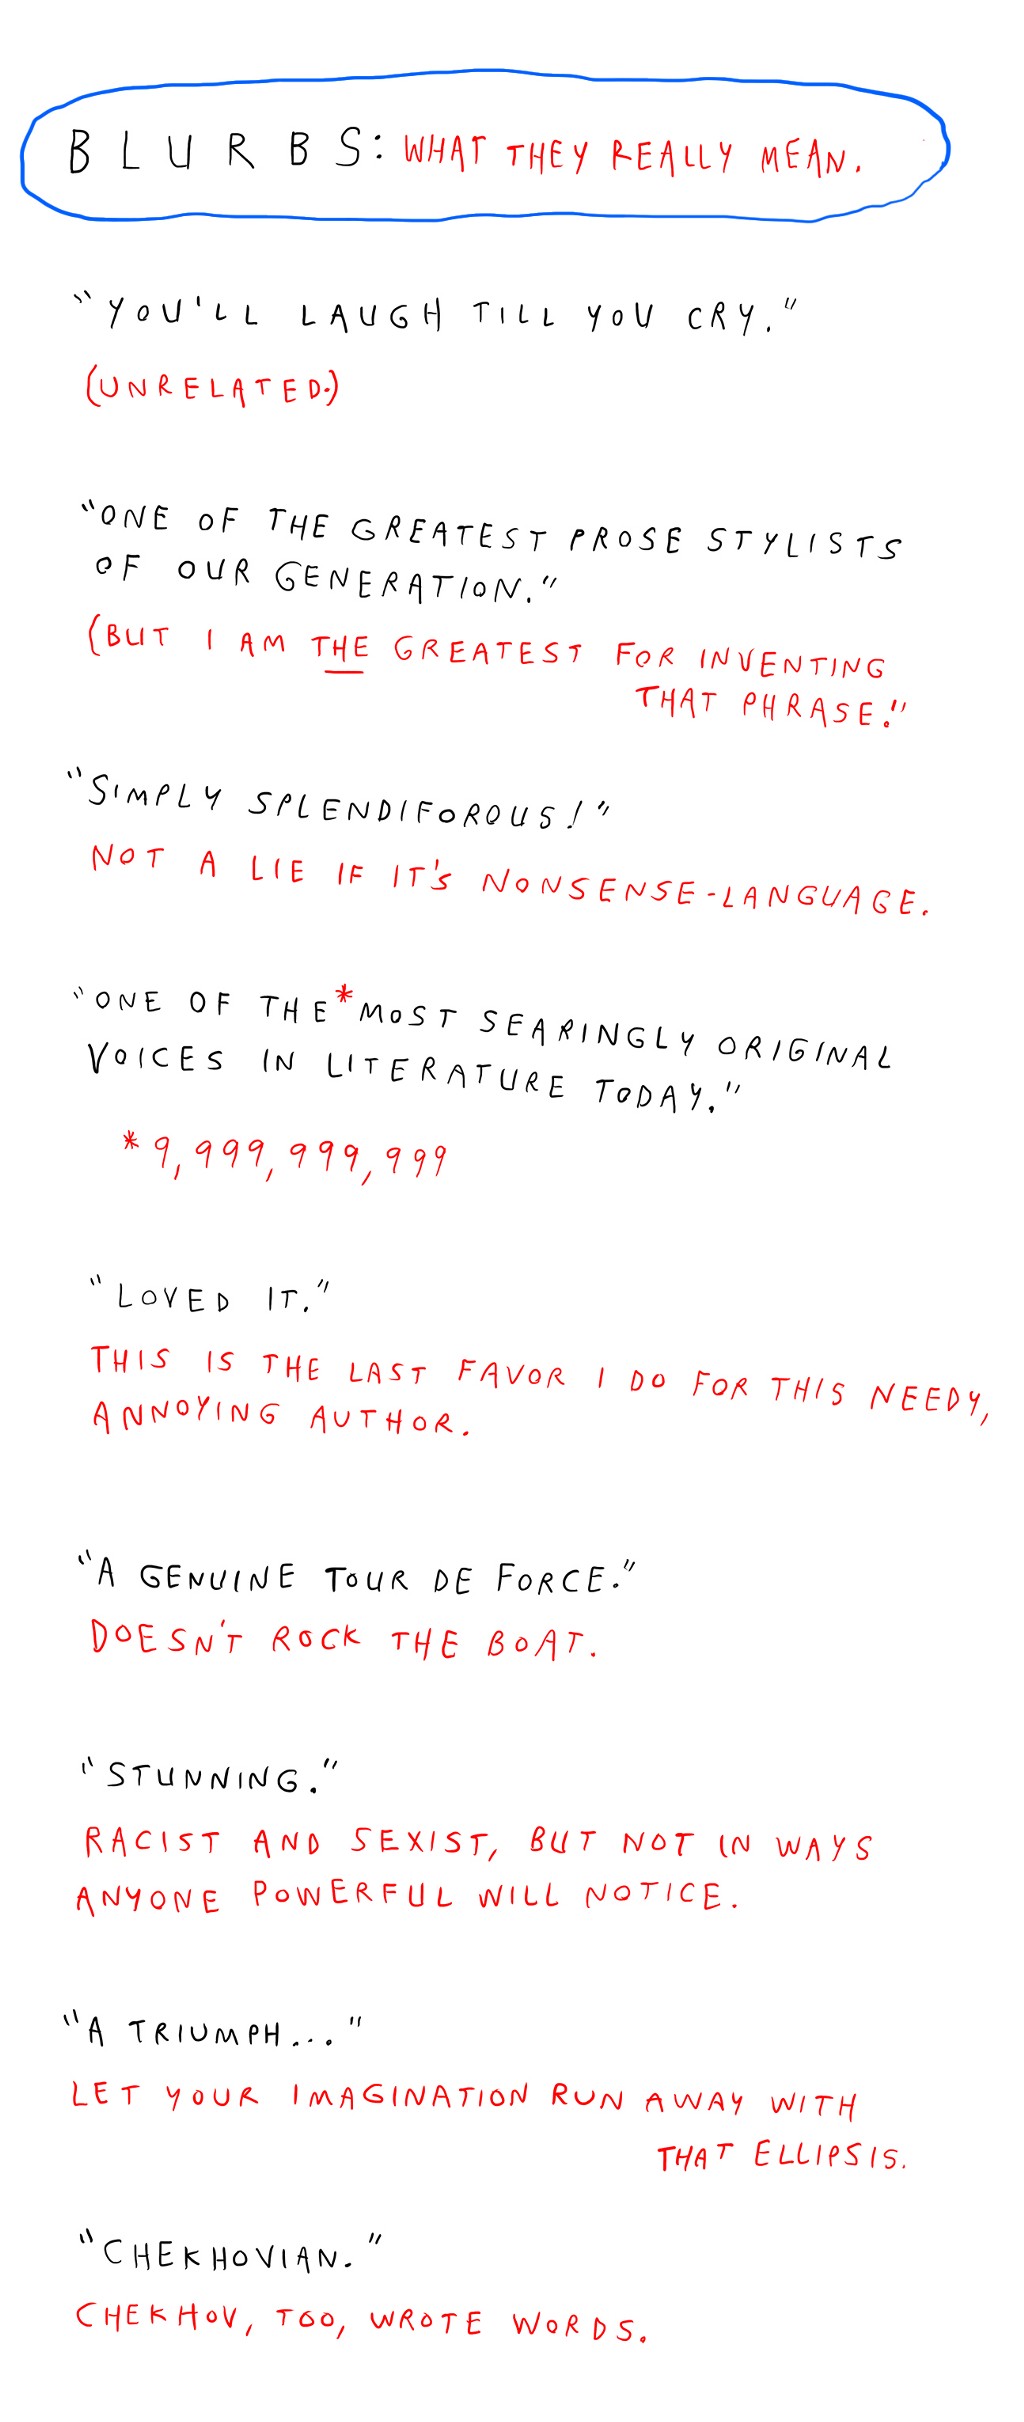 BLURBS: WHAT THEY REALLY MEAN.
"YOU'LL LAUGH TILL YOU CRY."
(UNRELATED.)
"ONE OF THE GREATEST PROSE STYLISTS
OF OUR GENERATION."
(BUT I AM THE GREATEST FOR INVENTING
THAT PHRASE!"
"SIMPLY SPLENDIFOROUS!"
NOT A LIE IF IT'S NONSENSE-LANGUAGE.
"ONE OF THE *MOST SEARINGLY ORIGINAL
VOICES IN LITERATURE TODAY."
*9,999,999,999
"LOVED IT."
THIS IS THE LAST FAVOR I DO FOR THIS NEEDY,
ANNOYING AUTHOR.
"A GENUINE TOUR DE FORCE."
DOESN'T ROCK THE BOAT.
"STUNNING."
RACIST AND SEXIST, BUT NOT IN WAYS
ANYONE POWERFUL WILL NOTICE.
"A TRIUMPH..."
LET YOUR IMAGINATION RUN AWAY WITH
THAT ELLIPSIS.
"CHEKHOVIAN."
CHEKHOV, TOO, WROTE WORDS.